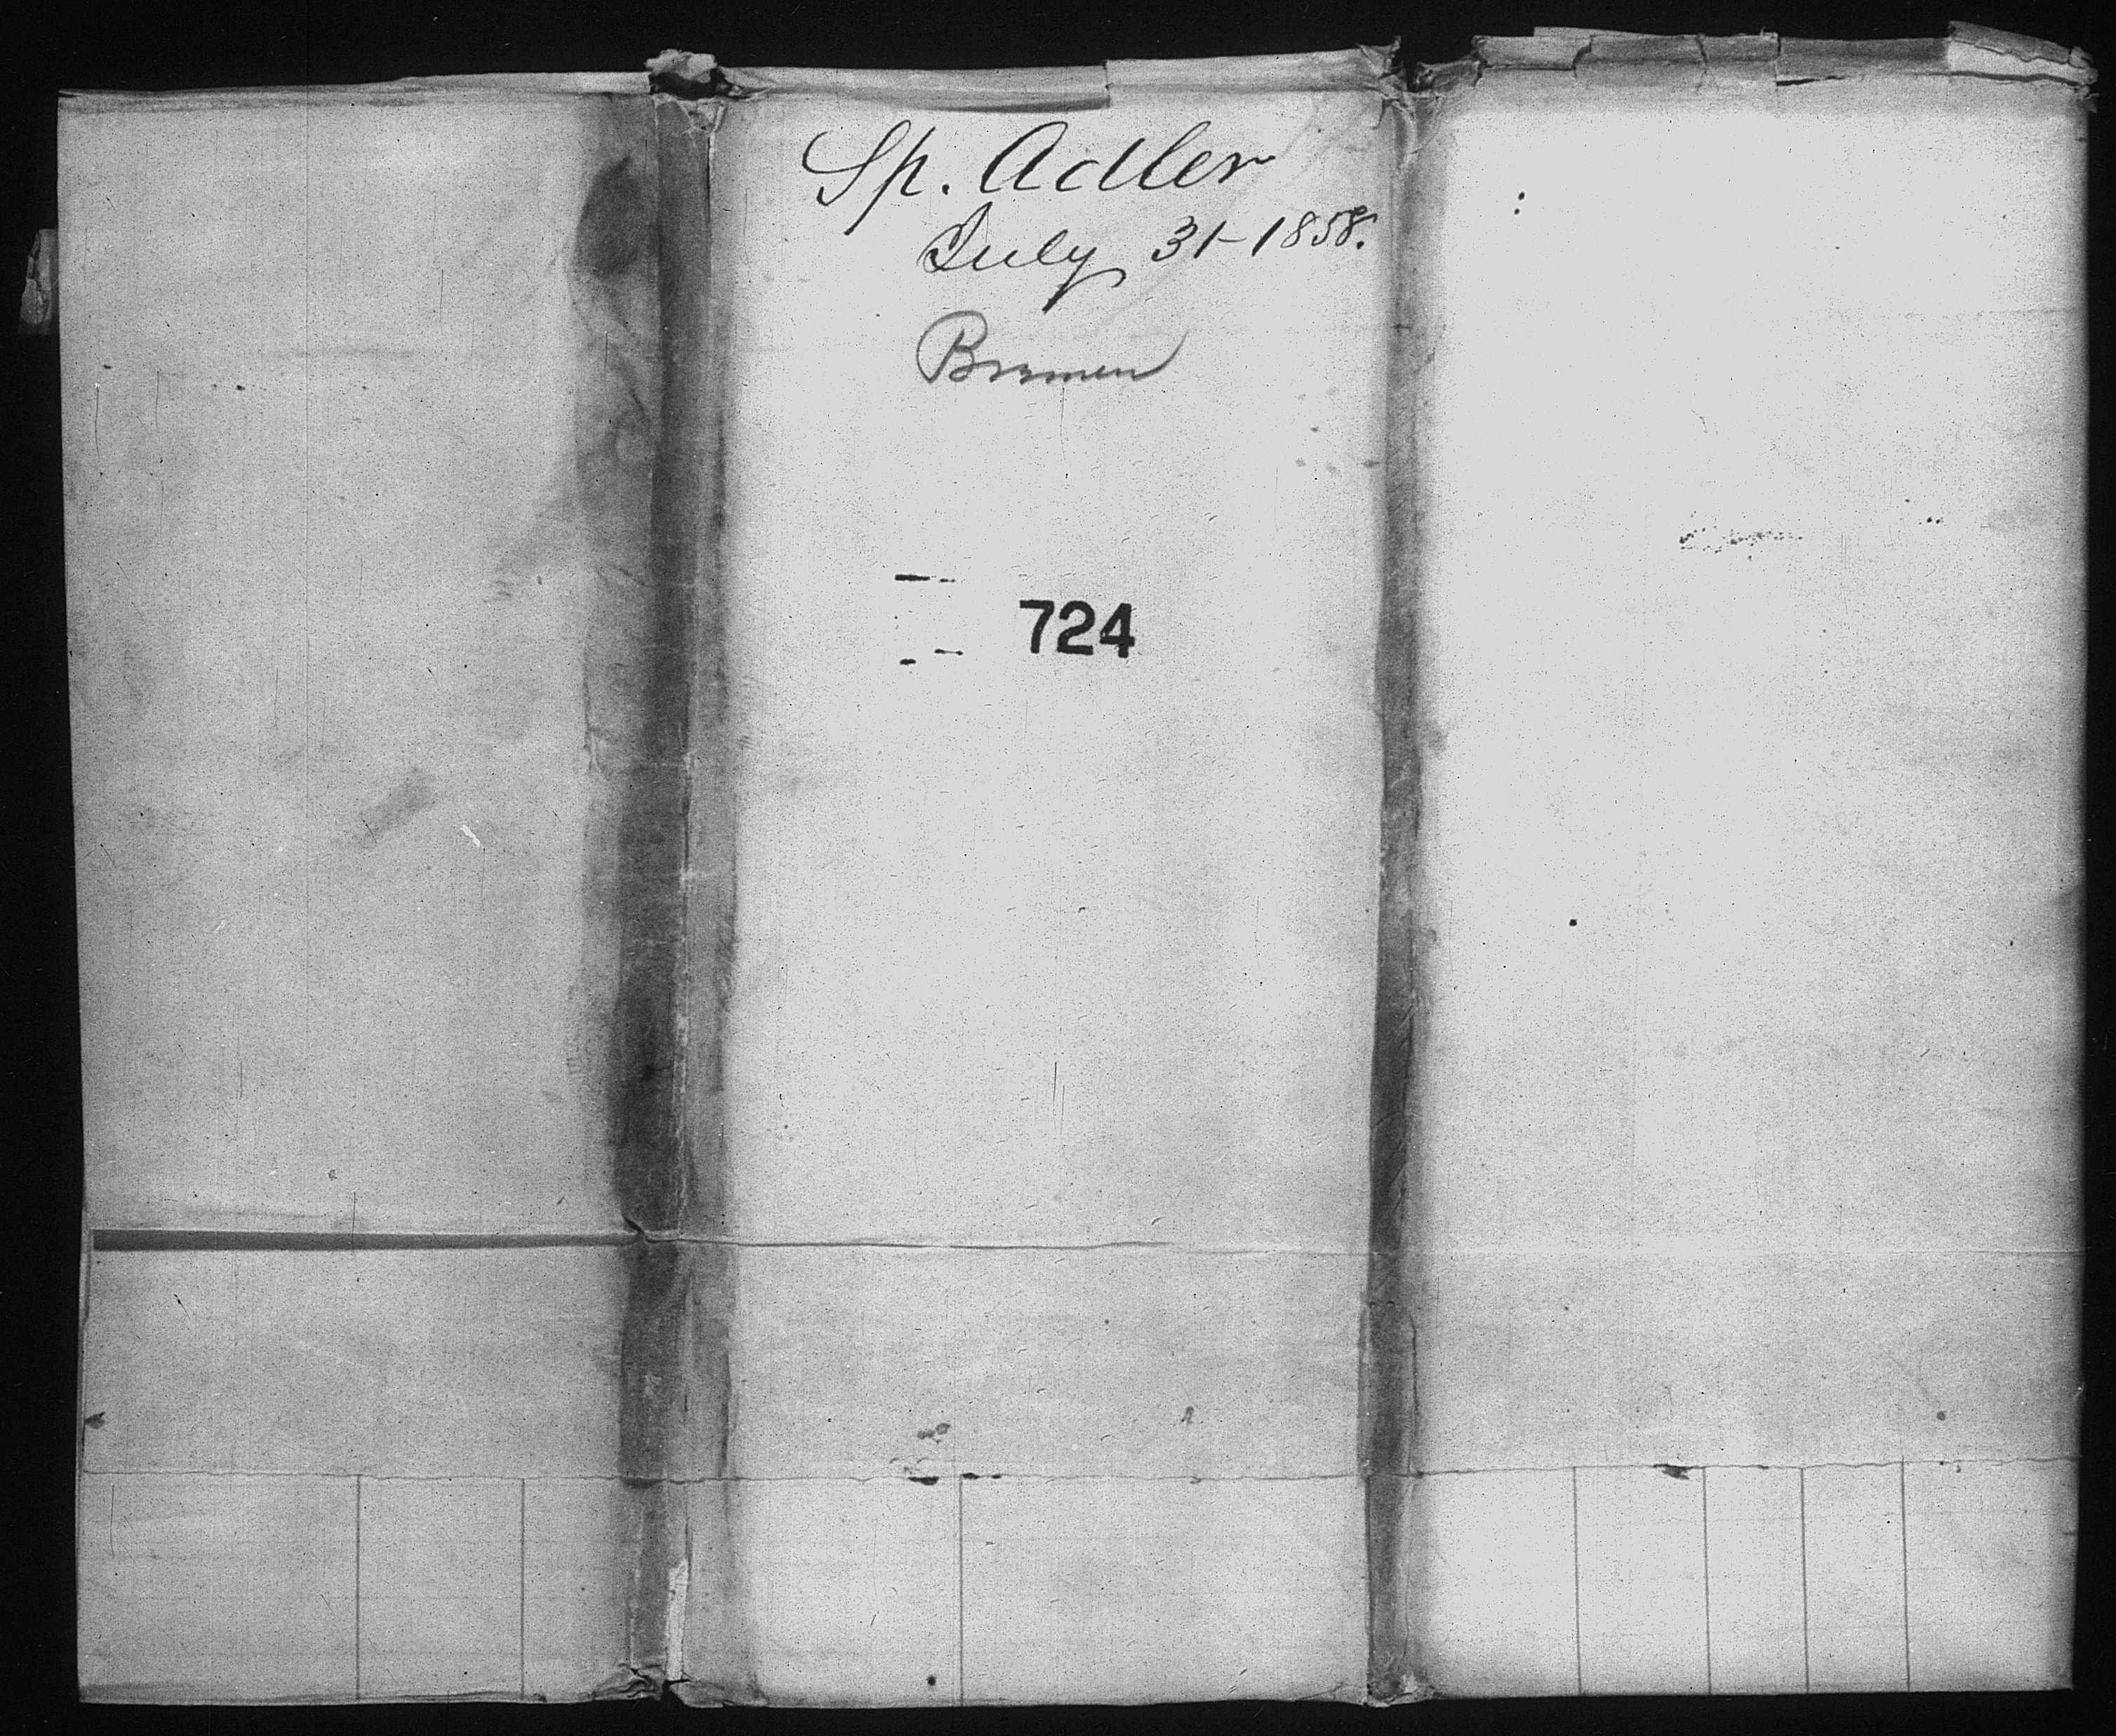 Sp. Adler
July 31-1858.
Bremen
724